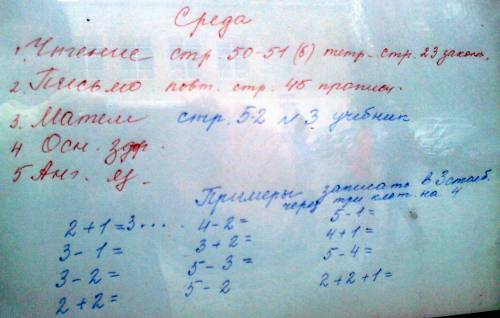 Среда
1. Чтение стр. 50-51 (б) тетр. стр. 23 законч.
2. Письмо повт. стр. 45 пропись.
3. Матем стр. 52 №3 учебник
4 Осн. здр.
5 Анг. яз.
Примеры записать в 3 столб.
через три клет. на 4
2+1=3.... 4-2= 5-1=
3-1= 3+2= 4+1=
3-2= 5-3= 5-4=
2+2= 5-2 2+2+1=